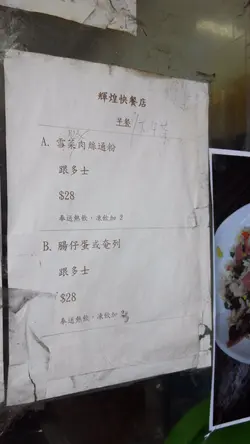 輝煌快餐店
早餐
A. 雪菜肉絲通粉
跟多士
$28
奉送熱飲，凍飲加 2
B. 腸仔蛋或奄列
跟多士
$28
奉送熱飲，凍飲加